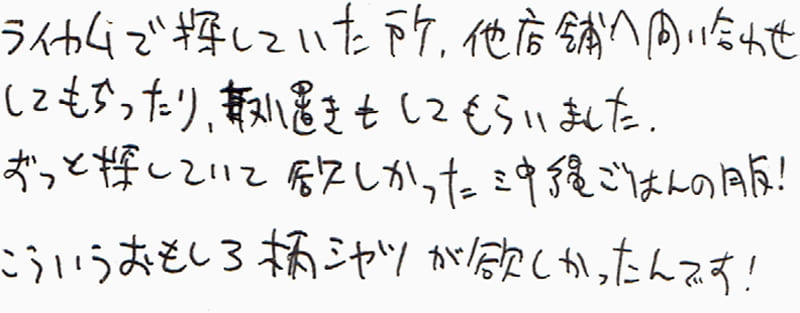 ライカムで探していた所、他店舗へ問い合わせ
してもらったり、取り置きもしてもらいました。
ずっと探していて欲しかった沖縄ごはんの服!
こういうおもしろ柄シャツが欲しかったんです!